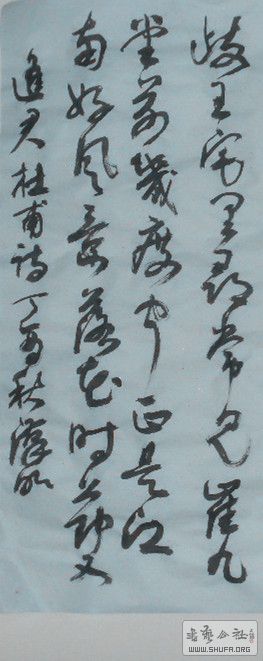 岐王宅里寻常见崔九
堂前几度闻正是江
南好风景落花时节又
逢君杜甫诗丁酉秋
书艺公社
WWW.SHUFA.ORG